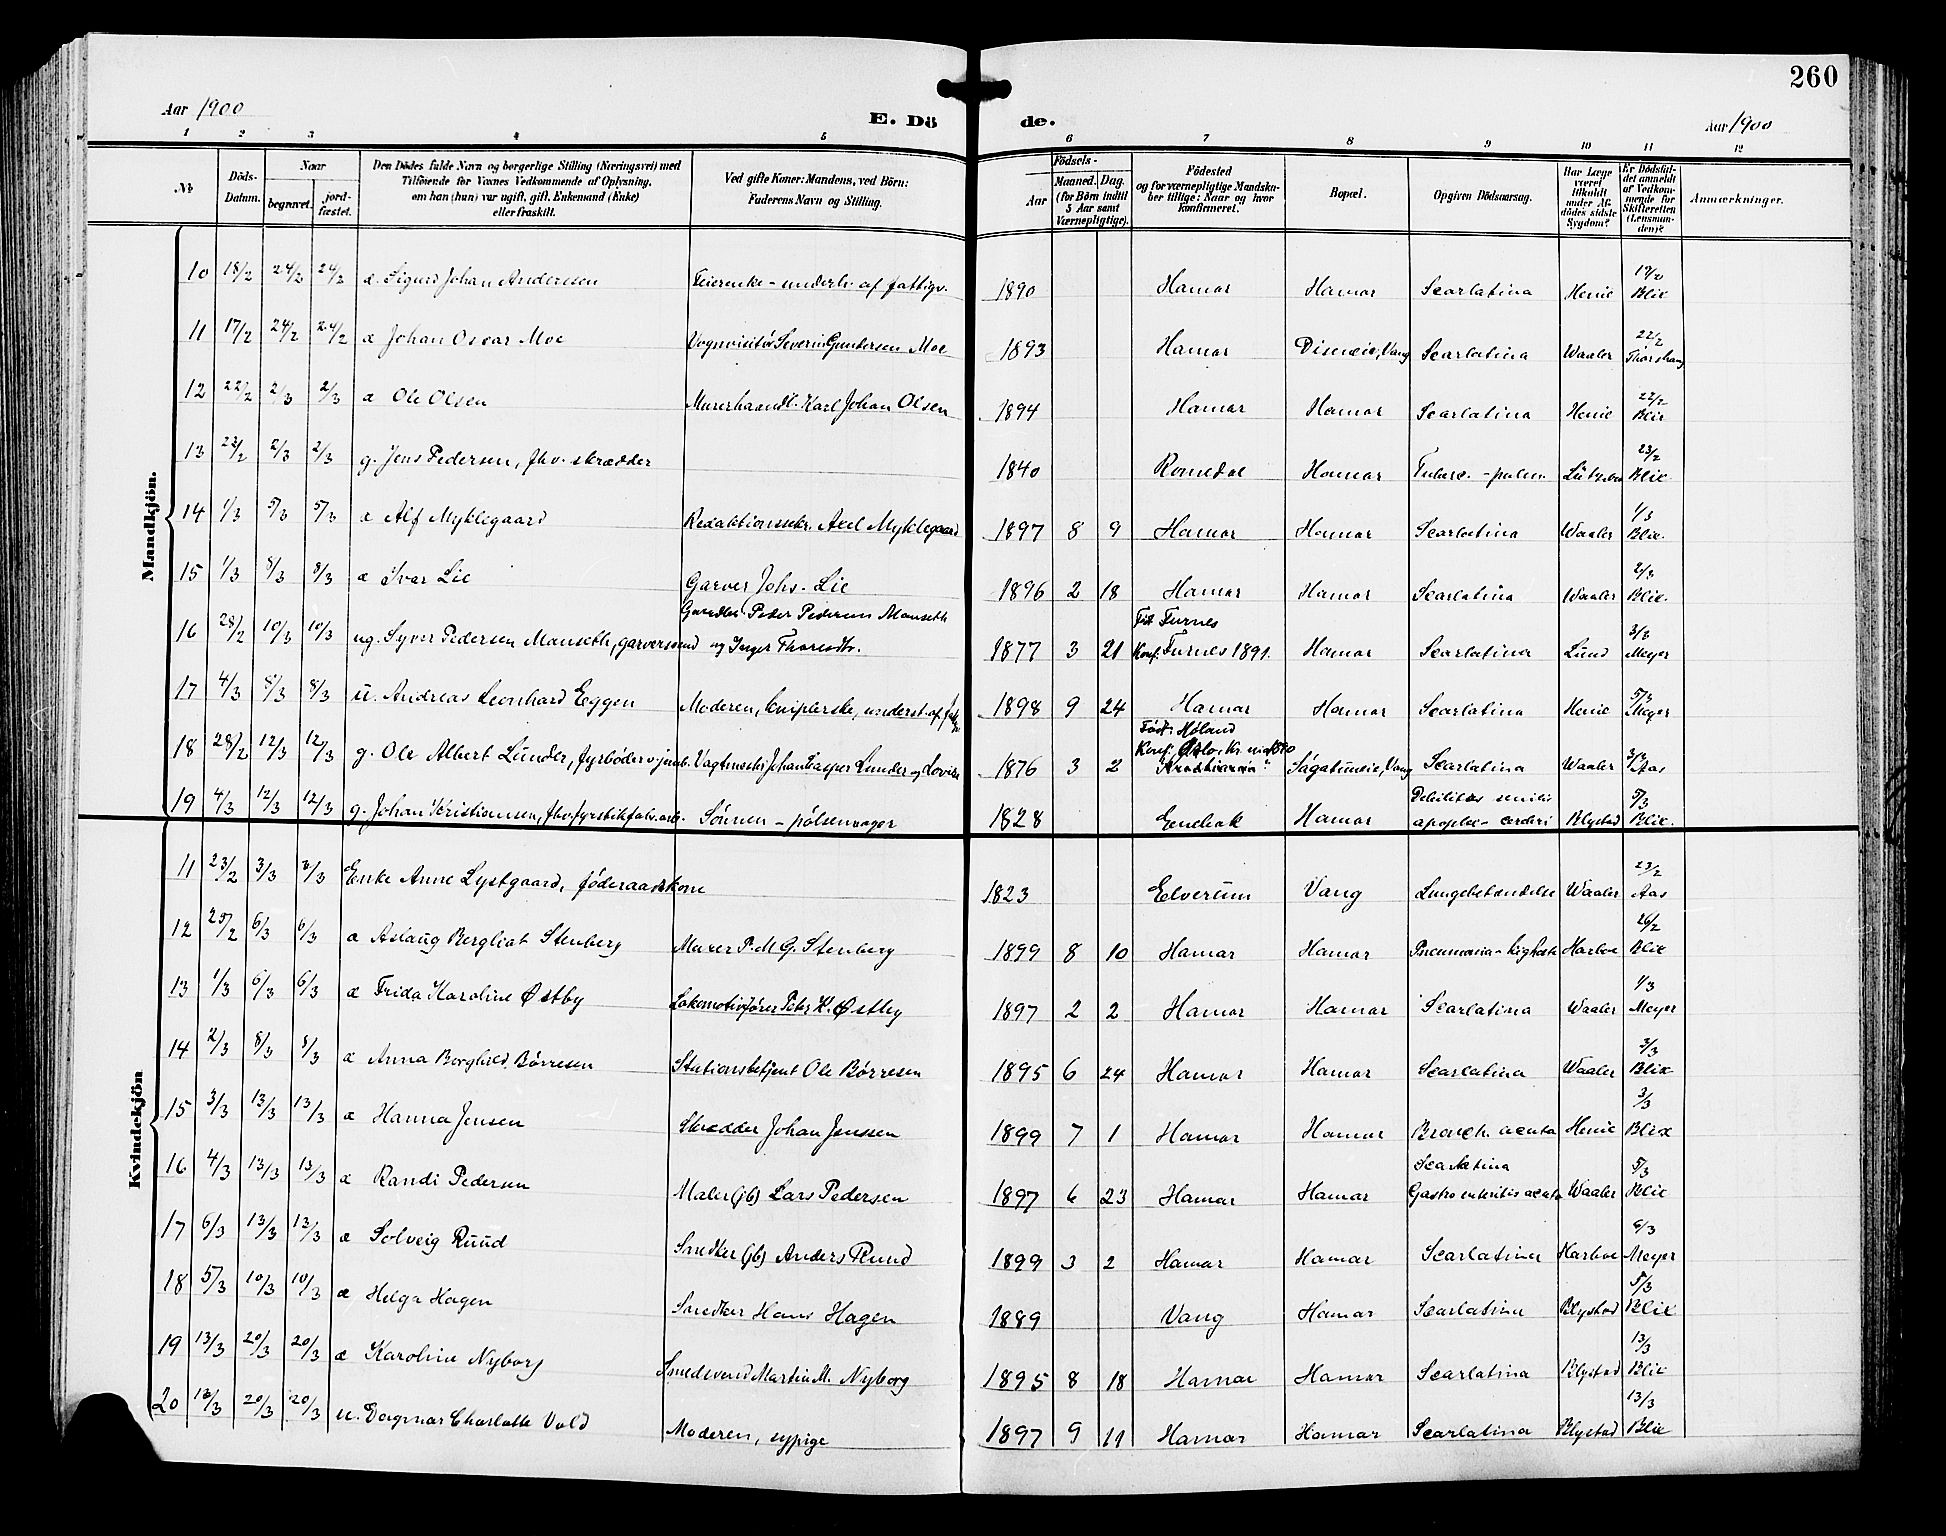 260
Aar 1900
E. Dö de.
Aar 1900
1 2 3 4 5 6 7 8 9 10 11 12
No
Döds-Datum.
Naar
begravet.
jord-fæstet.
Den Dödes fulde Navn og borgerlige Stilling (Næringsvei) med
Tilföiende for Voxnes Vedkommende af Oplysning,
om han (hun) var ugift, gift, Enkemand (Enke)
eller fraskilt.
Ved gifte Koner: Mandens, ved Börn:
Faderens Navn og Stilling.
Födsels-
Aar
Maaned. Dag.
(for Börn indtil
5 Aar samt
Værnepligtige).
Födested
og for værnepligtige Mandska-
ber tillige: Naar og hvor
konfirmeret.
Bopæl.
Opgiven Dödsaarsag.
Har Læge
været
tilkaldt
under Af-
dödes sidste
Sygdom?
Er Dödsfal-
det anmeldt
af Vedkom-
mende for
Skifteretten
(Lensman-
den)?
Anmærkninger.
Mandkjön.
10 18/2 24/2 24/2 æ. Sigurd Johan Andersen Feierenke - underh. af fattigv. 1890 Hamar Hamar Scarlatina Henie 19/2 Blix
11 17/2 24/2 24/2 æ Johan Oscar Moe Vognvisitør Severin Gundersen Moe 1893 Hamar Disneie, Vang Scarlatina Waaler 22/2 Thorshaug
12 22/2 2/3 2/3 æ Ole Olsen Murerhaandl. Karl Johan Olsen 1894 Hamar Hamar Scarlatina Henie 22/2 Blix
13 23/2 2/3 2/3 g. Jens Pedersen, fhv. skrædder 1840 Romedal Hamar Tuberc. - pulm. 23/2 Blix
14 1/3 5/3 5/3 æ Alf Myklegaard Redaktionssekr. Axel Myklegaard 1897 8 9 Hamar Hamar Scarlatina Waaler 1/3 Blix.
15 1/3 8/3 8/3 æ Ivar Lie Garver Johs. Lie 1896 2 18 Hamar Hamar Scarlatina Waaler 2/3 Blix.
16 28/2 10/3 10/3 ug. Syver Pedersen Manseth, garversvend Gaardbr. Peder Pedersen Manseth og Inger Thoresdtr. 1877 3 21 Furnes Konf. Furnes 1891. Hamar Scarlatina Lund 3/3 Meyer
17 4/3 8/3 8/3 u. Andreas Leonhard Eggen Moderen, kniplerske, underst. af 1898 9 24 Hamar Hamar Scarlatina Henie 5/3 Meyer
18 28/2 12/3 12/3 g. Ole Albert Lunder, fyrbøder v. jernb. Vagtmester Johan Casper Lunder og Lovise 1876 3 2 Født: Høland Konf. Oslo, Kr. Kristiania Sagatuneie, Vang Scarlatina Waaler 3/3 Aas
19 4/3 12/3 12/3 g. Johan Kristiansen, fhv. fyrstikfabr.arb. Sønnen - pølsemager 1828 Enebak Hamar Debilitas senilis apoplex - cerebri Blystad 5/3 Blix.
Kvindekjön
11 23/2 3/3 3/3 Enke Anne Lystgaard, føderaadskone 1823 Elverum Vang Lungebetændelse Waaler 23/2 Aas
12 25/2 6/3 6/3 æ Aslaug Bergliot Stenberg Murer P. M. G. Stenberg 1899 8 10 Hamar Hamar Pneumonia - kighoste Harboe 26/2 Blix
13 1/3 6/3 6/3 æ Frida Karoline Østby Lokomotivfører Peter K. Østby 1897 2 2 Hamar Hamar Scarlatina Waaler 1/3 Meyer
14 2/3 8/3 8/3 æ Anna Borghild Børresen Stationsbetjent Ole Børresen 1895 6 24 Hamar Hamar Scarlatina Waaler 3/3 Blix
15 3/3 13/3 13/3 æ Hanna Jensen Skrædder Johan Jenssen 1899 7 1 Hamar Hamar Bronch. acuta Henie 3/3 Blix
16 4/3 13/3 13/3 æ Randi Pedersen Maler (jb) Lars Pedersen 1897 6 23 Hamar Hamar Scarlatina Gastro enteritis acuta Waaler 5/3 Blix
17 6/3 13/3 13/3 æ Solveig Ruud Snedker (jb) Anders Ruud 1899 3 2 Hamar Hamar Scarlatina Harboe 6/3 Meyer
18 5/3 10/3 10/3 æ Helga Hagen Snedker Hans Hagen 1889 Vang Hamar Scarlatina Blystad 5/3 Blix
19 13/3 20/3 20/3 æ Karoline Nyborg Smedsvend Martin M. Nyborg 1895 8 18 Hamar Hamar Scarlatina Blystad 13/3 Blix
20 13/3 20/3 20/3 u. Dagmar Charlotte Vold Moderen, sypige 1897 9 11 Hamar Hamar Scarlatina Blystad 13/3 Blix